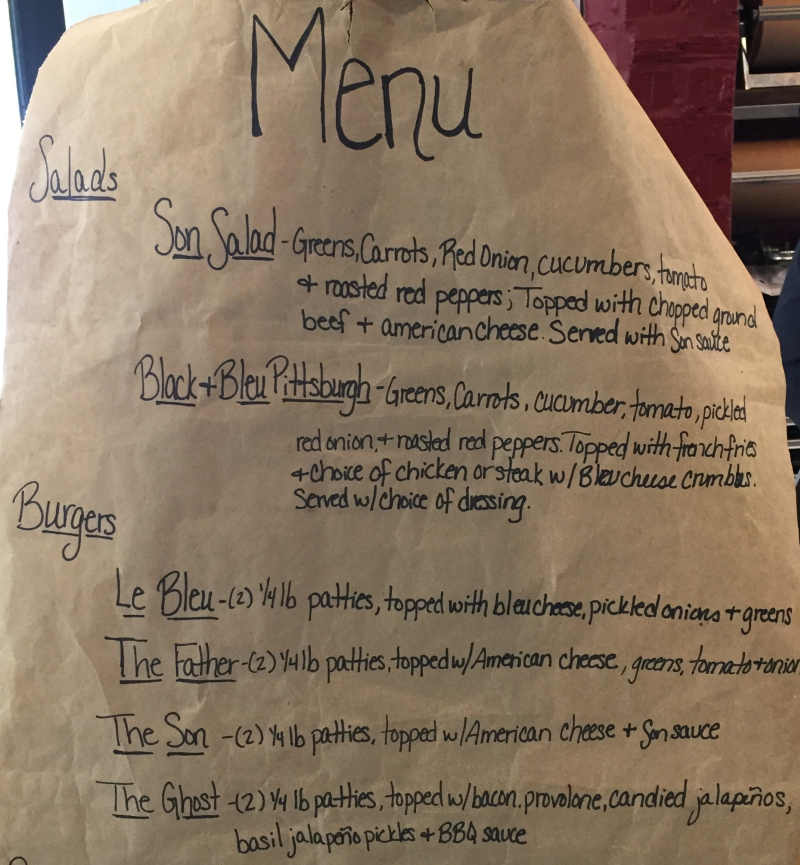 Menu
Salads
Son Salad - Greens, Carrots, Red Onion, cucumbers, tomato
+ roasted red peppers; Topped with chopped ground
beef + american cheese. Served with Son sauce
Black + Bleu Pittsburgh - Greens, Carrots, cucumber, tomato, pickled
red onion, + roasted red peppers. Topped with french fries
+ choice of chicken or steak w/ Bleu cheese crumbles.
Served w/ choice of dressing.
Burgers
Le Bleu - (2) 1/4 lb patties, topped with bleu cheese, pickled onions + greens
The Father - (2) 1/4 lb patties, topped w/ American cheese, greens, tomato + onion
The Son - (2) 1/4 lb patties, topped w/ American cheese + Son sauce
The Ghost - (2) 1/4 lb patties, topped w/ bacon, provolone, candied jalapeños,
basil jalapeño pickles + BBQ sauce